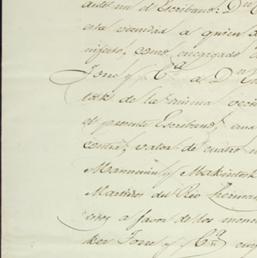 ante mi el Escribano: Dn
esta vecindad a quien d
nifesto, como encargado d
Torre y Ca a Dn
de la misma vecin
el presente Escribano,
contra, valor de cuatro m
Mannoni y Makintosh
Martines del Rio herman
a favor de los mencio
Torre y Ca